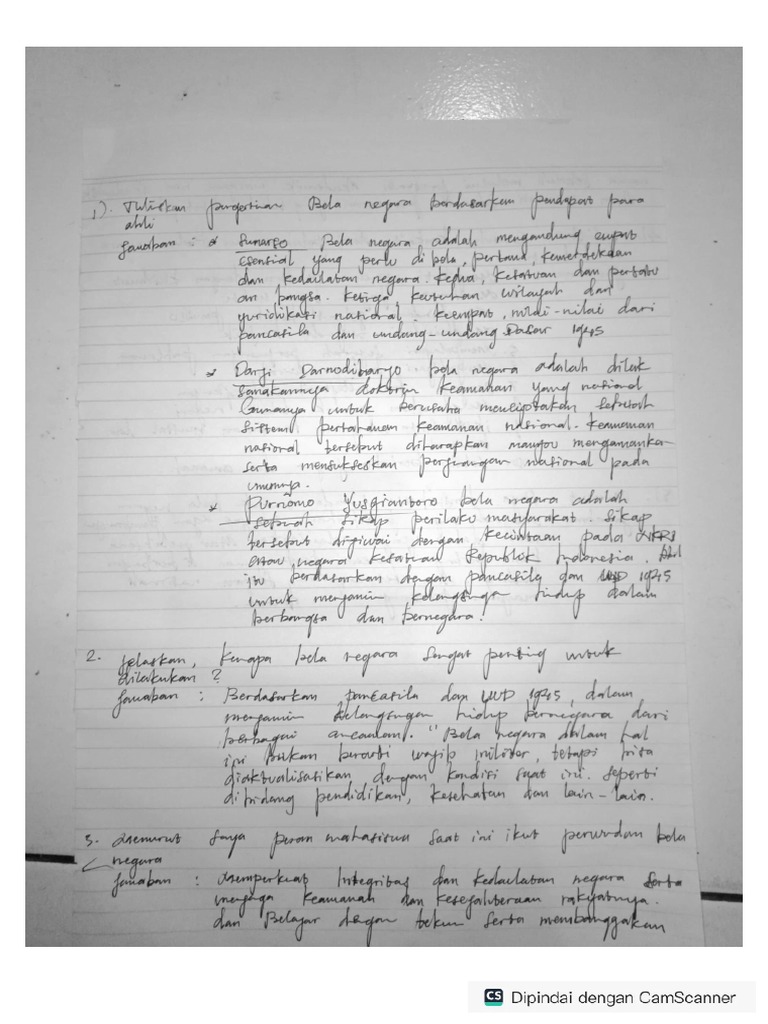 1). Tuliskan pengertian Bela negara berdasarkan pendapat para
ahli
Jawaban : * Sunarso Bela negara adalah mengandung empat
esensial yang perlu di bela, pertama, kemerdekaan
dan kedaulatan negara. Kedua, kesatuan dan persatu
an bangsa. Ketiga keutuhan wilayah dan
yuridikasi nasional. Keempat, nilai-nilai dari
pancasila dan undang-undang Dasar 1945
* Darji Darmodiharjo bela negara adalah dilak
sanakannya doktrin keamanan yang nasional
Gunanya untuk berusaha menciptakan sebuah
sistem pertahanan keamanan nasional. Keamanan
nasional tersebut diharapkan mampu mengamankan
serta mensukseskan perjuangan nasional pada
umumnya.
* Purnomo Yusgiantoro bela negara adalah
sebuah sikap perilaku masyarakat. Sikap
tersebut dijiwai dengan kecintaan pada NKRI
atau negara kesatuan Republik Indonesia.
itu berdasarkan dengan pancasila dan UUD 1945
untuk menjamin kelangsunga hidup dalam
berbangsa dan bernegara.
2. Jelaskan, kenapa bela negara sangat penting untuk
dilakukan ?
Jawaban : Berdasarkan pancasila dan UUD 1945, dalam
menjamin kelangsungan hidup bernegara dari
berbagai ancaman. "Bela negara dalam hal
ini bukan berarti wajib militer, tetapi bisa
diaktualisasikan dengan kondisi saat ini. seperti
di bidang pendidikan, kesehatan dan lain-lain.
3. Menurut saya peran mahasiswa saat ini ikut perwujudan bela
negara
Jawaban : Memperkuat Integritas dan kedaulatan negara serta
menjaga keamanah dan kesejahteraan rakyatnya.
dan Belajar dengan tekun serta membanggakan
CS Dipindai dengan CamScanner